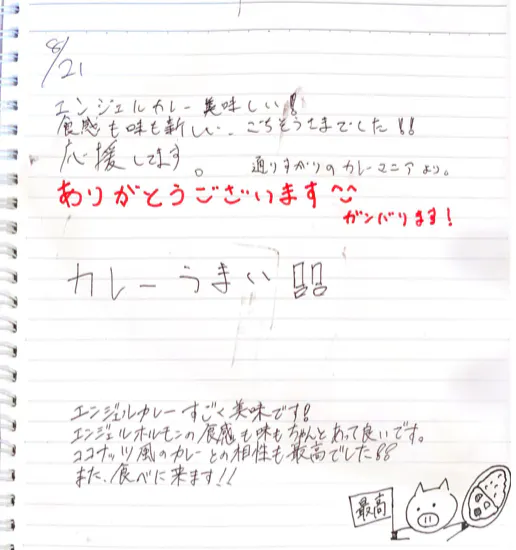 8/21
エンジェルカレー美味しい!
食感も味も新しい、ごちそうさまでした!!
応援してます。
通りすがりのカレーマニアより。
ありがとうございます^^
ガンバります!
カレーうまい!!
エンジェルカレーすごく美味です!
エンジェルホルモンの食感も味もちゃんとあって良いです。
ココナッツ風のカレーとの相性も最高でした!!
また、食べに来ます!!
最高